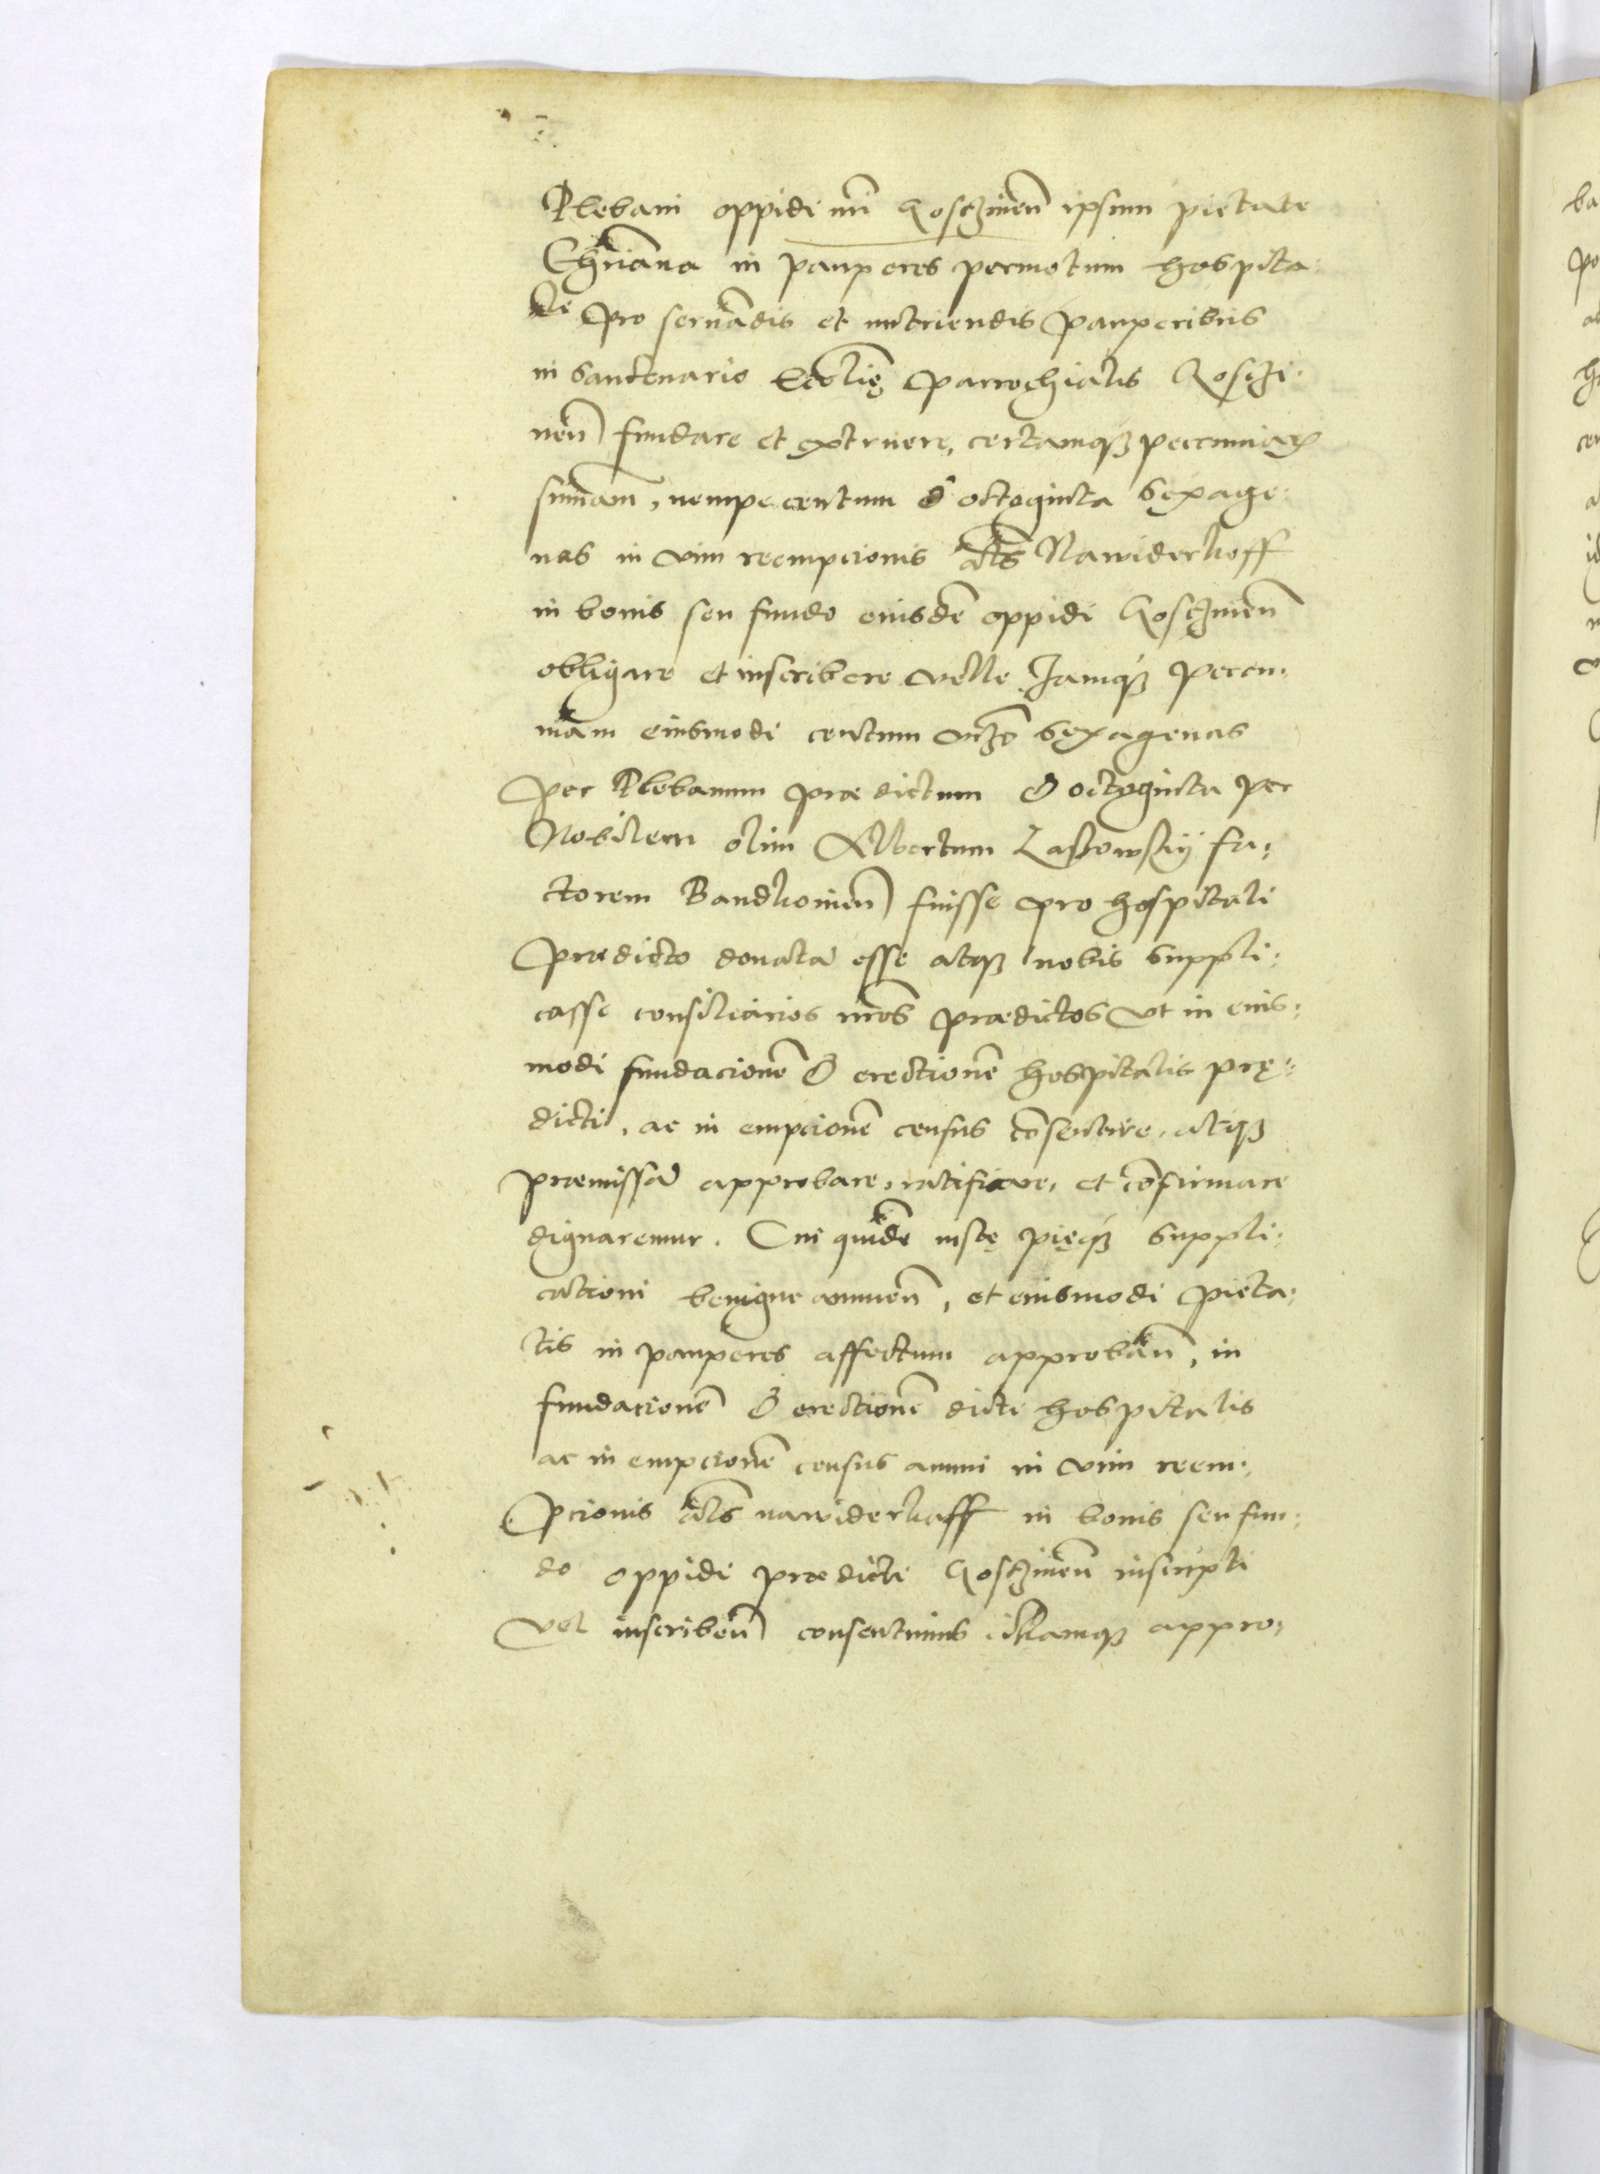 Plebani oppidi nrī Kosczinen̄ ipsum pietate
Chr̄iana in pauperes permotum hospita:
le pro seruādis et nutriendis pauperibus
in Santenario Eccl̄ię parrochialis Kosczi:
nen̄ fundare et extruere, certamqȝ pecuniaꝝ
sum̄am, nempe centum & octoginta sexage:
nas in vim reempcionis al̄s Nawiderkoff
in bonis seu fundo eiusdē oppidi Kosczinen̄
obligare et inscribere velle Jamqȝ pecu:
niam eiusmodi centum sexagenas
per Plebanum prædictum & octoginta per
Nobilem olim Albertum Laskowskij fa:
ctorem Bandkouien̄ fuisse pro hospitali
prædicto donata esse atqȝ nobis suppli:
casse consiliarios nr̄os prædictos vt in eius:
modi fundacionē & erectionē hospitalis prę:
dicti, ac in empcionē census cōsentire, atqȝ
præmissa approbare, ratificare, et cōfirmare
dignaremur. Cui quidē iustę pięqȝ suppli:
cationi benigne annuen̄, et eiusmodi pieta:
tis in pauperes affectum approban̄, in
fundacionē & erectionē dicti hospitalis
ac in empcionē census annui in vim reem:
pcionis al̄s nawiderkaff in bonis seu fun:
do oppidi prædicti Kosczinen̄ inscripti
vel inscriben̄ consentimus illamqȝ appro: